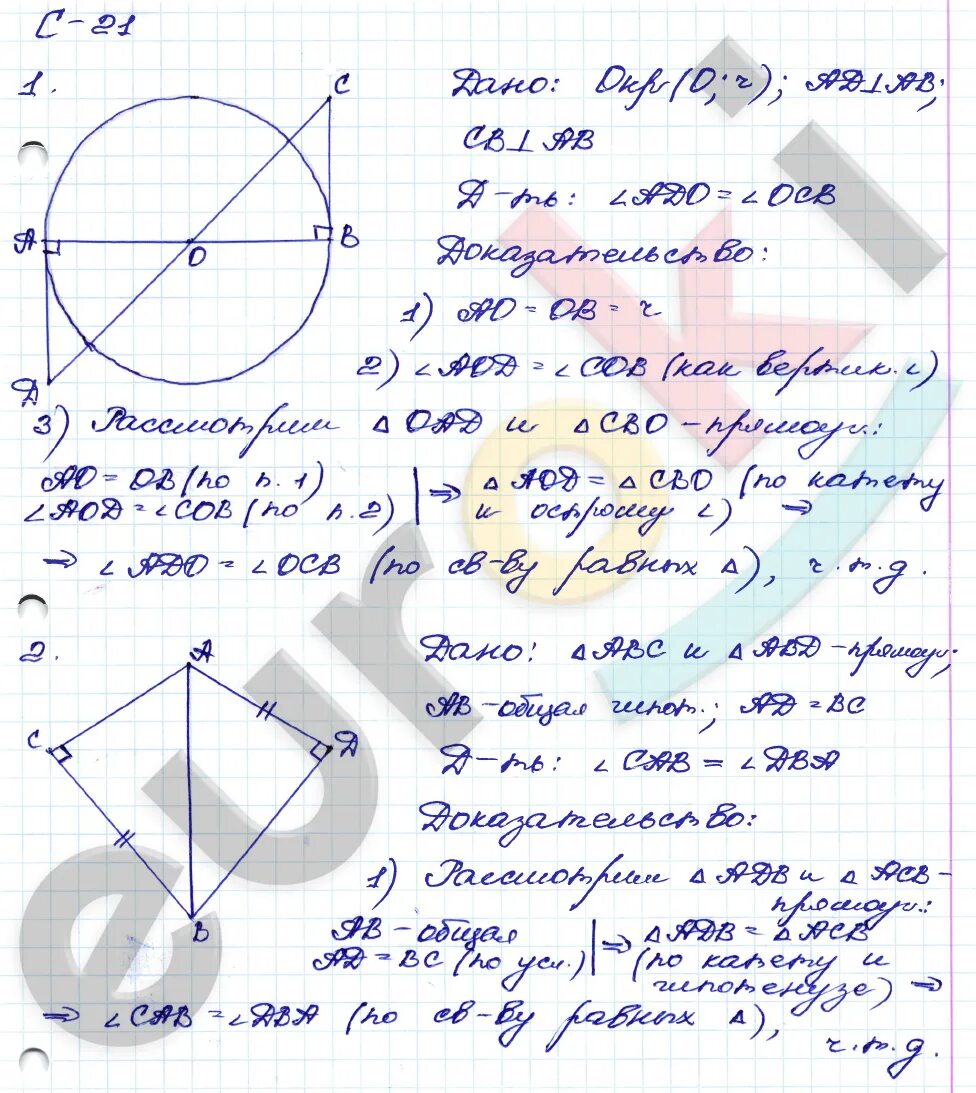 С-21
1.
C
A
B
O
D
Дано: Окр(О; r); AD⊥AB;
CB⊥AB
Д-ть: ∠ADO = ∠OCB
Доказательство:
1) AO = OB = r
2) ∠AOD = ∠COB (как вертик. ∠)
3) Рассмотрим △OAD и △CBO - прямоуг.:
AO = OB (по п. 1)
∠AOD = ∠COB (по п. 2)
⇒ △AOD = △CBO (по катету
и острому ∠) ⇒
⇒ ∠ADO = ∠OCB (по св-ву равных △), ч.т.д.
2.
A
C
D
B
Дано: △ABC и △ABD - прямоуг.;
AB - общая гипот.; AD = BC
Д-ть: ∠CAB = ∠DBA
Доказательство:
1) Рассмотрим △ADB и △ACB -
прямоуг.:
AB - общая
AD = BC (по усл.)
⇒ △ADB = △ACB
(по катету и
гипотенузе) ⇒
⇒ ∠CAB = ∠DBA (по св-ву равных △),
ч.т.д.
euroki